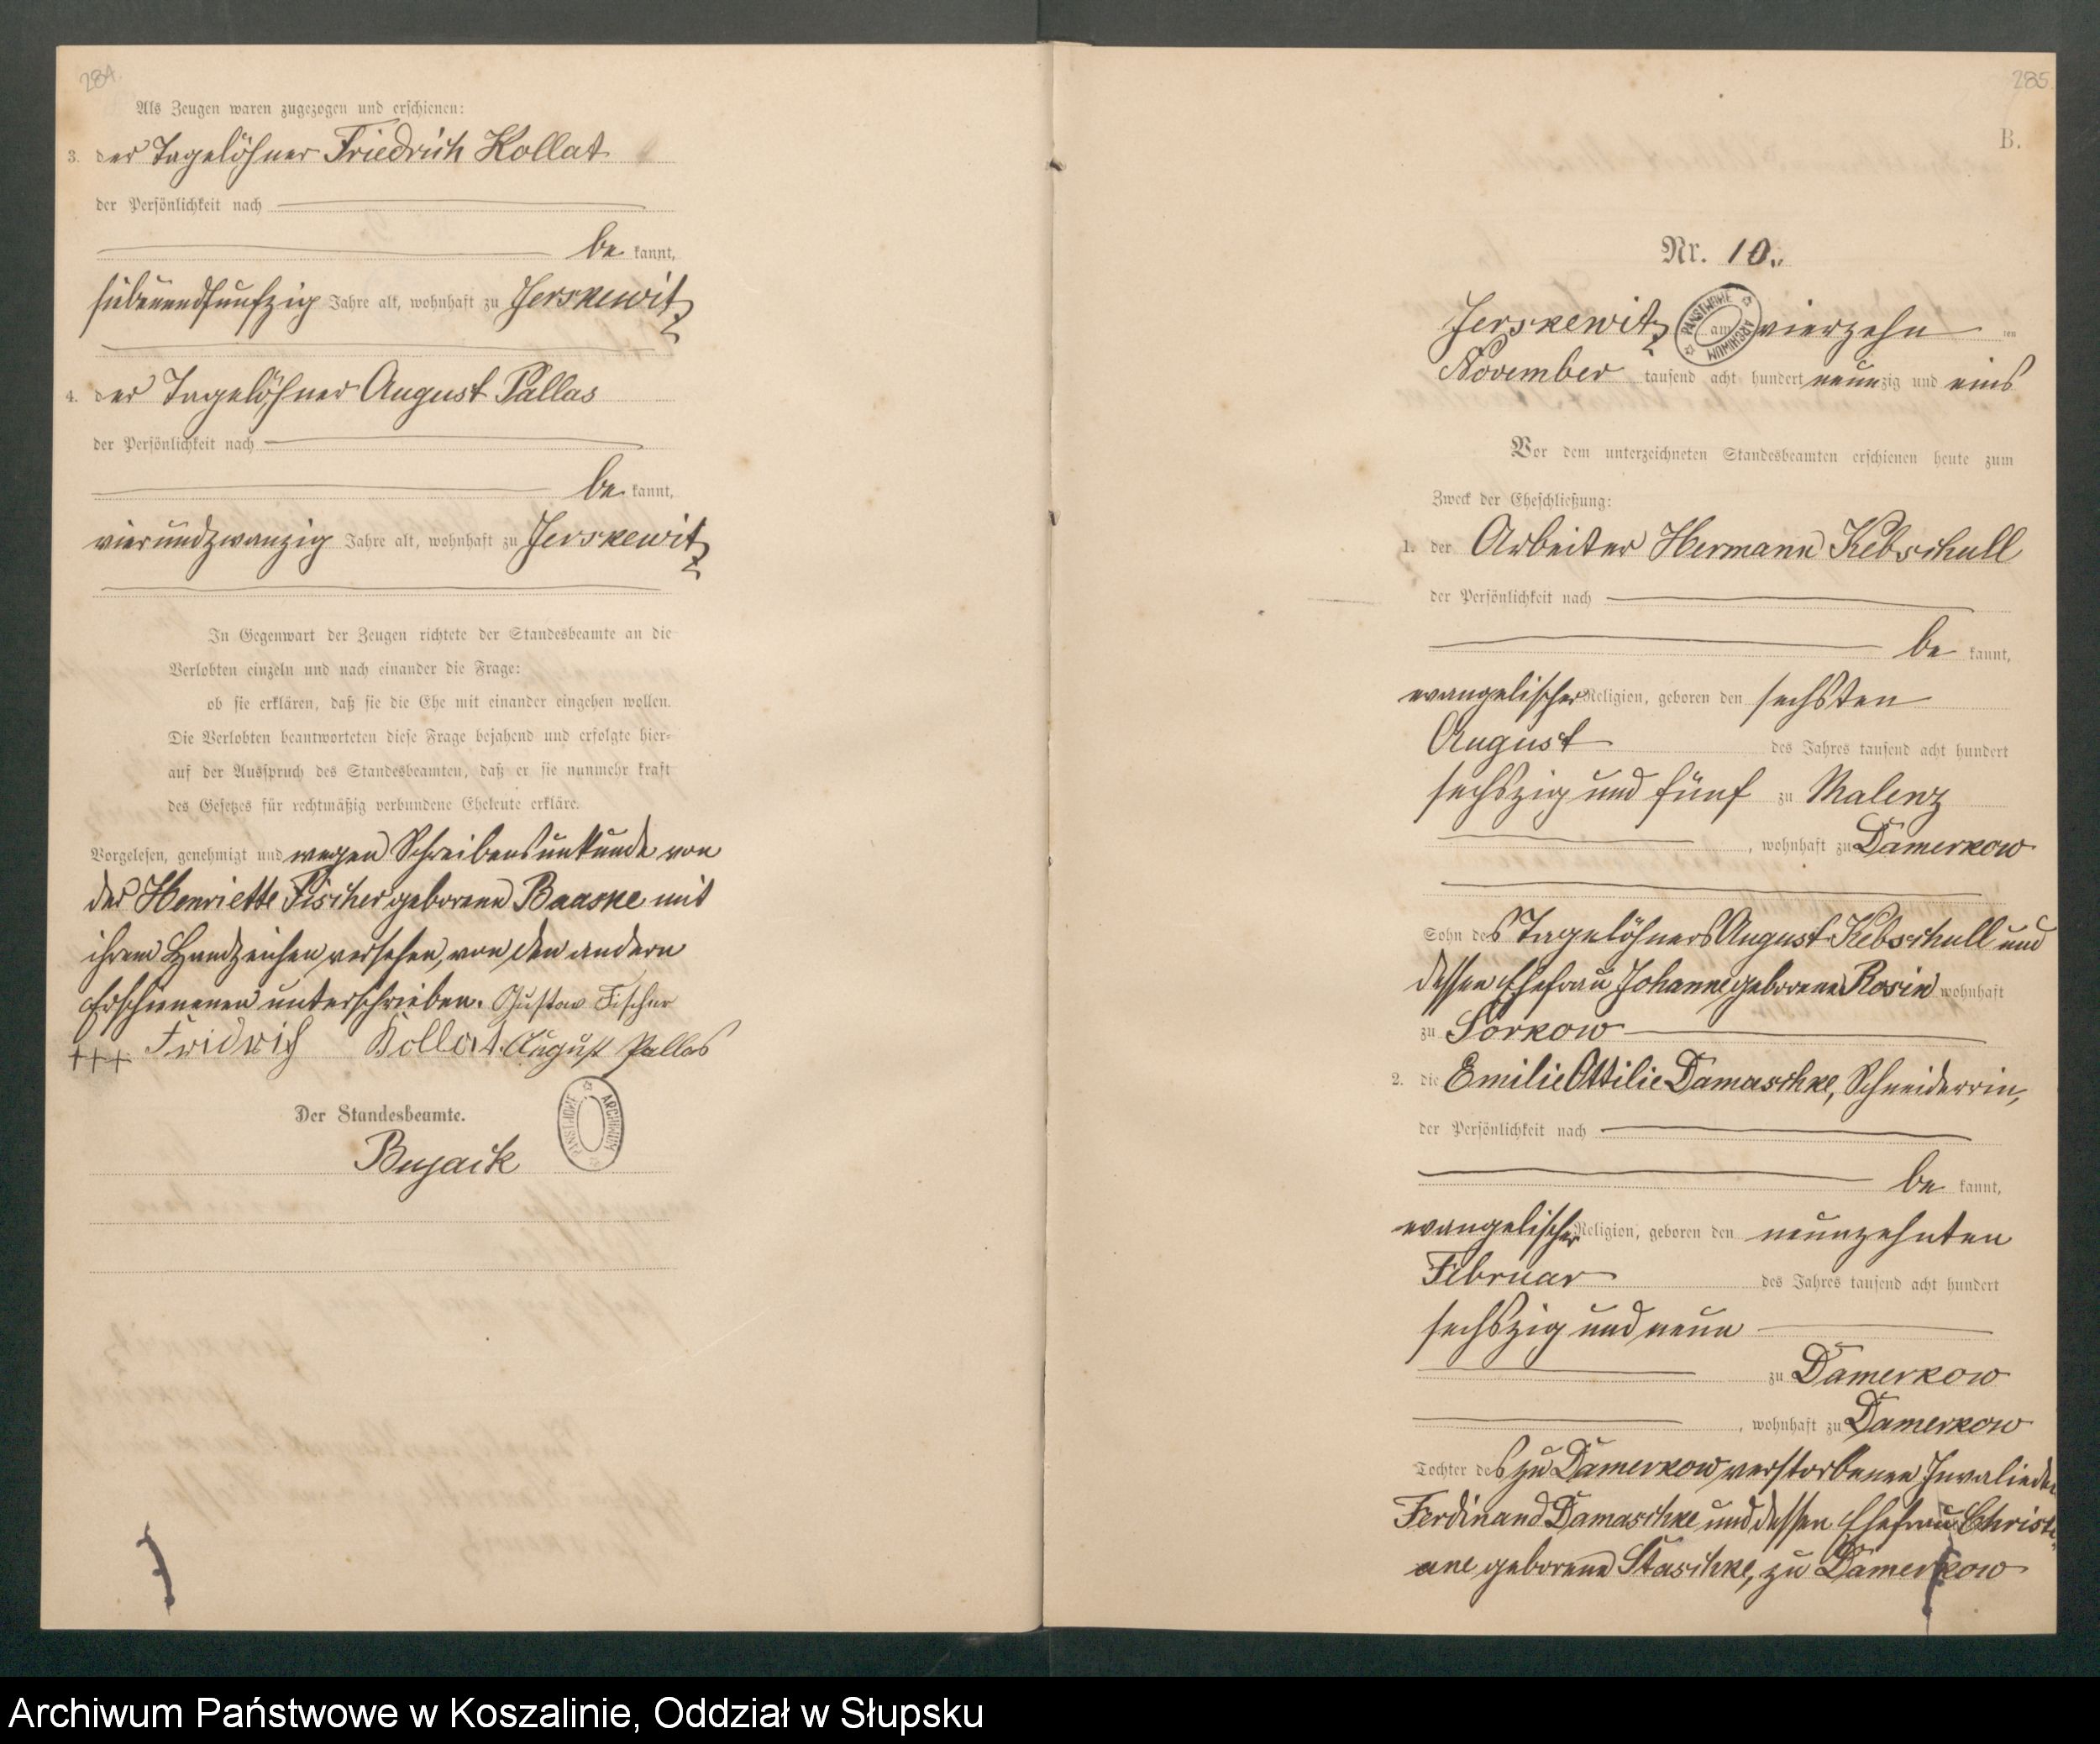 284.
Als Zeugen waren zugezogen und erschienen:
3. der Tagelöhner Friedrich Kollat
der Persönlichkeit nach
be kannt,
siebenundfünfzig Jahre alt, wohnhaft zu Jerskewitz
4. der Tagelöhner August Pallas
der Persönlichkeit nach
be kannt,
vierundzwanzig Jahre alt, wohnhaft zu Jerskewitz
In Gegenwart der Zeugen richtete der Standesbeamte an die
Verlobten einzeln und nach einander die Frage:
ob sie erklären, daß sie die Ehe mit einander eingehen wollen.
Die Verlobten beantworteten diese Frage bejahend und erfolgte hier-
auf der Ausspruch des Standesbeamten, daß er sie nunmehr kraft
des Gesetzes für rechtmäßig verbundene Eheleute erkläre.
Vorgelesen, genehmigt und wegen Schreibensunkunde von
der Henriette Fischer geborene Baaske mit
ihrem Handzeichen versehen, von den andern
Erschienenen unterschrieben. Gustav Fischer
+++ Fridrich Kollat. August Pallas
Der Standesbeamte.
Bujack
ARCHIWUM PAŃSTWOWE
285
B.
Nr. 10.
Jerskewitz am vierzehn ten
PAŃSTWOWE ARCHIWUM
November tausend acht hundert neunzig und eins
Vor dem unterzeichneten Standesbeamten erschienen heute zum
Zweck der Eheschließung:
1. der Arbeiter Hermann Kebschull
der Persönlichkeit nach
be kannt,
evangelischer Religion, geboren den sechsten
August des Jahres tausend acht hundert
sechszig und fünf zu Malenz
, wohnhaft zu Damerkow
Sohn des Tagelöhners August Kebschull und
dessen Ehefrau Johanne geborene Rosin wohnhaft
zu Sorkow
2. die Emilie Ottilie Damaschke, Schneiderrin,
der Persönlichkeit nach
be kannt,
evangelischer Religion, geboren den neunzehnten
Februar des Jahres tausend acht hundert
sechszig und neun
zu Damerkow
, wohnhaft zu Damerkow
Tochter des zu Damerkow verstorbenen Invalieden
Ferdinand Damaschke und dessen Ehefrau Christi-
ane geborene Staschke, zu Damerkow
Archiwum Państwowe w Koszalinie, Oddział w Słupsku